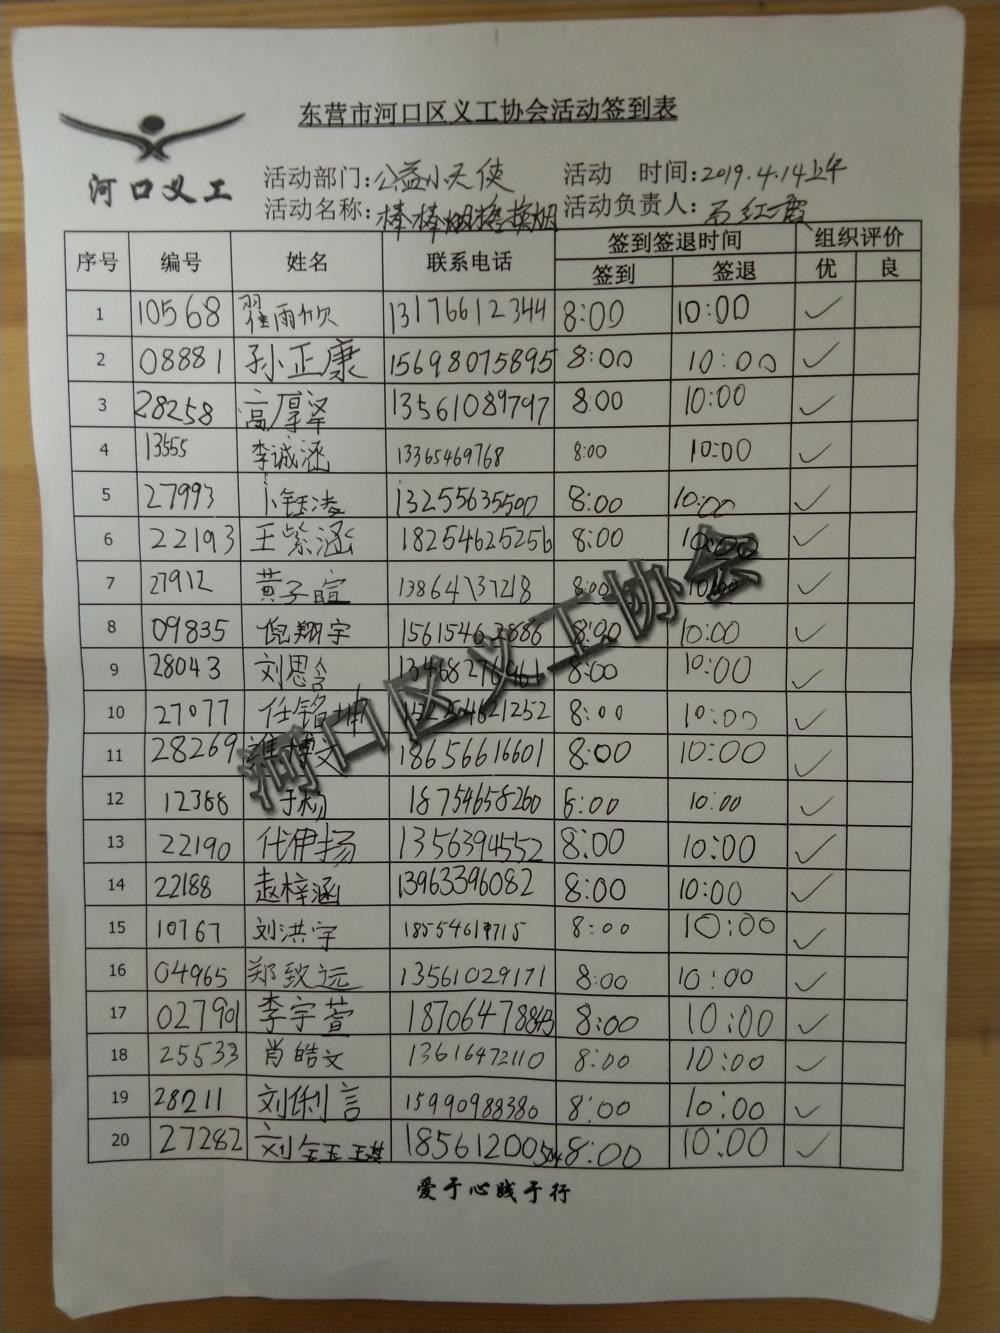 东营市河口区义工协会活动签到表
河口义工
活动部门:公益小天使 活动 时间:2019.4.14上午
活动名称:棒棒烟换烟 活动负责人:红霞
序号 编号 姓名 联系电话 签到签退时间 组织评价
签到 签退 优 良
1 10568 翟雨欣 13176612344 8:00 10:00 ✓
2 08881 孙正康 15698075895 8:00 10:00 ✓
3 28258 高厚泽 13561089797 8:00 10:00 ✓
4 13555 李诚涵 13365469768 8:00 10:00 ✓
5 27993 卜钰凌 13255635500 8:00 10:00 ✓
6 22193 王紫涵 18254625256 8:00 10:00 ✓
7 27912 黄子暄 13864137218 8:00 10:00 ✓
8 09835 倪翔宇 15615462886 8:00 10:00 ✓
9 28043 刘思含 13468276961 8:00 10:00 ✓
10 27077 任铭坤 8:00 10:00 ✓
11 28269 博文 18656616601 8:00 10:00 ✓
12 12368 于杨 18754658260 8:00 10:00 ✓
13 22190 代伊扬 1356394552 8:00 10:00 ✓
14 22188 赵梓涵 13963396082 8:00 10:00 ✓
15 10767 刘洪宇 18554619715 8:00 10:00 ✓
16 04965 郑致远 13561029171 8:00 10:00 ✓
17 027901 李宇萱 18706478843 8:00 10:00 ✓
18 25533 肖皓文 13616472110 8:00 10:00 ✓
19 28211 刘俐言 15990988380 8:00 10:00 ✓
20 27282 刘钰琪 18561200504 8:00 10:00 ✓
河口区义工协会
爱于心践于行